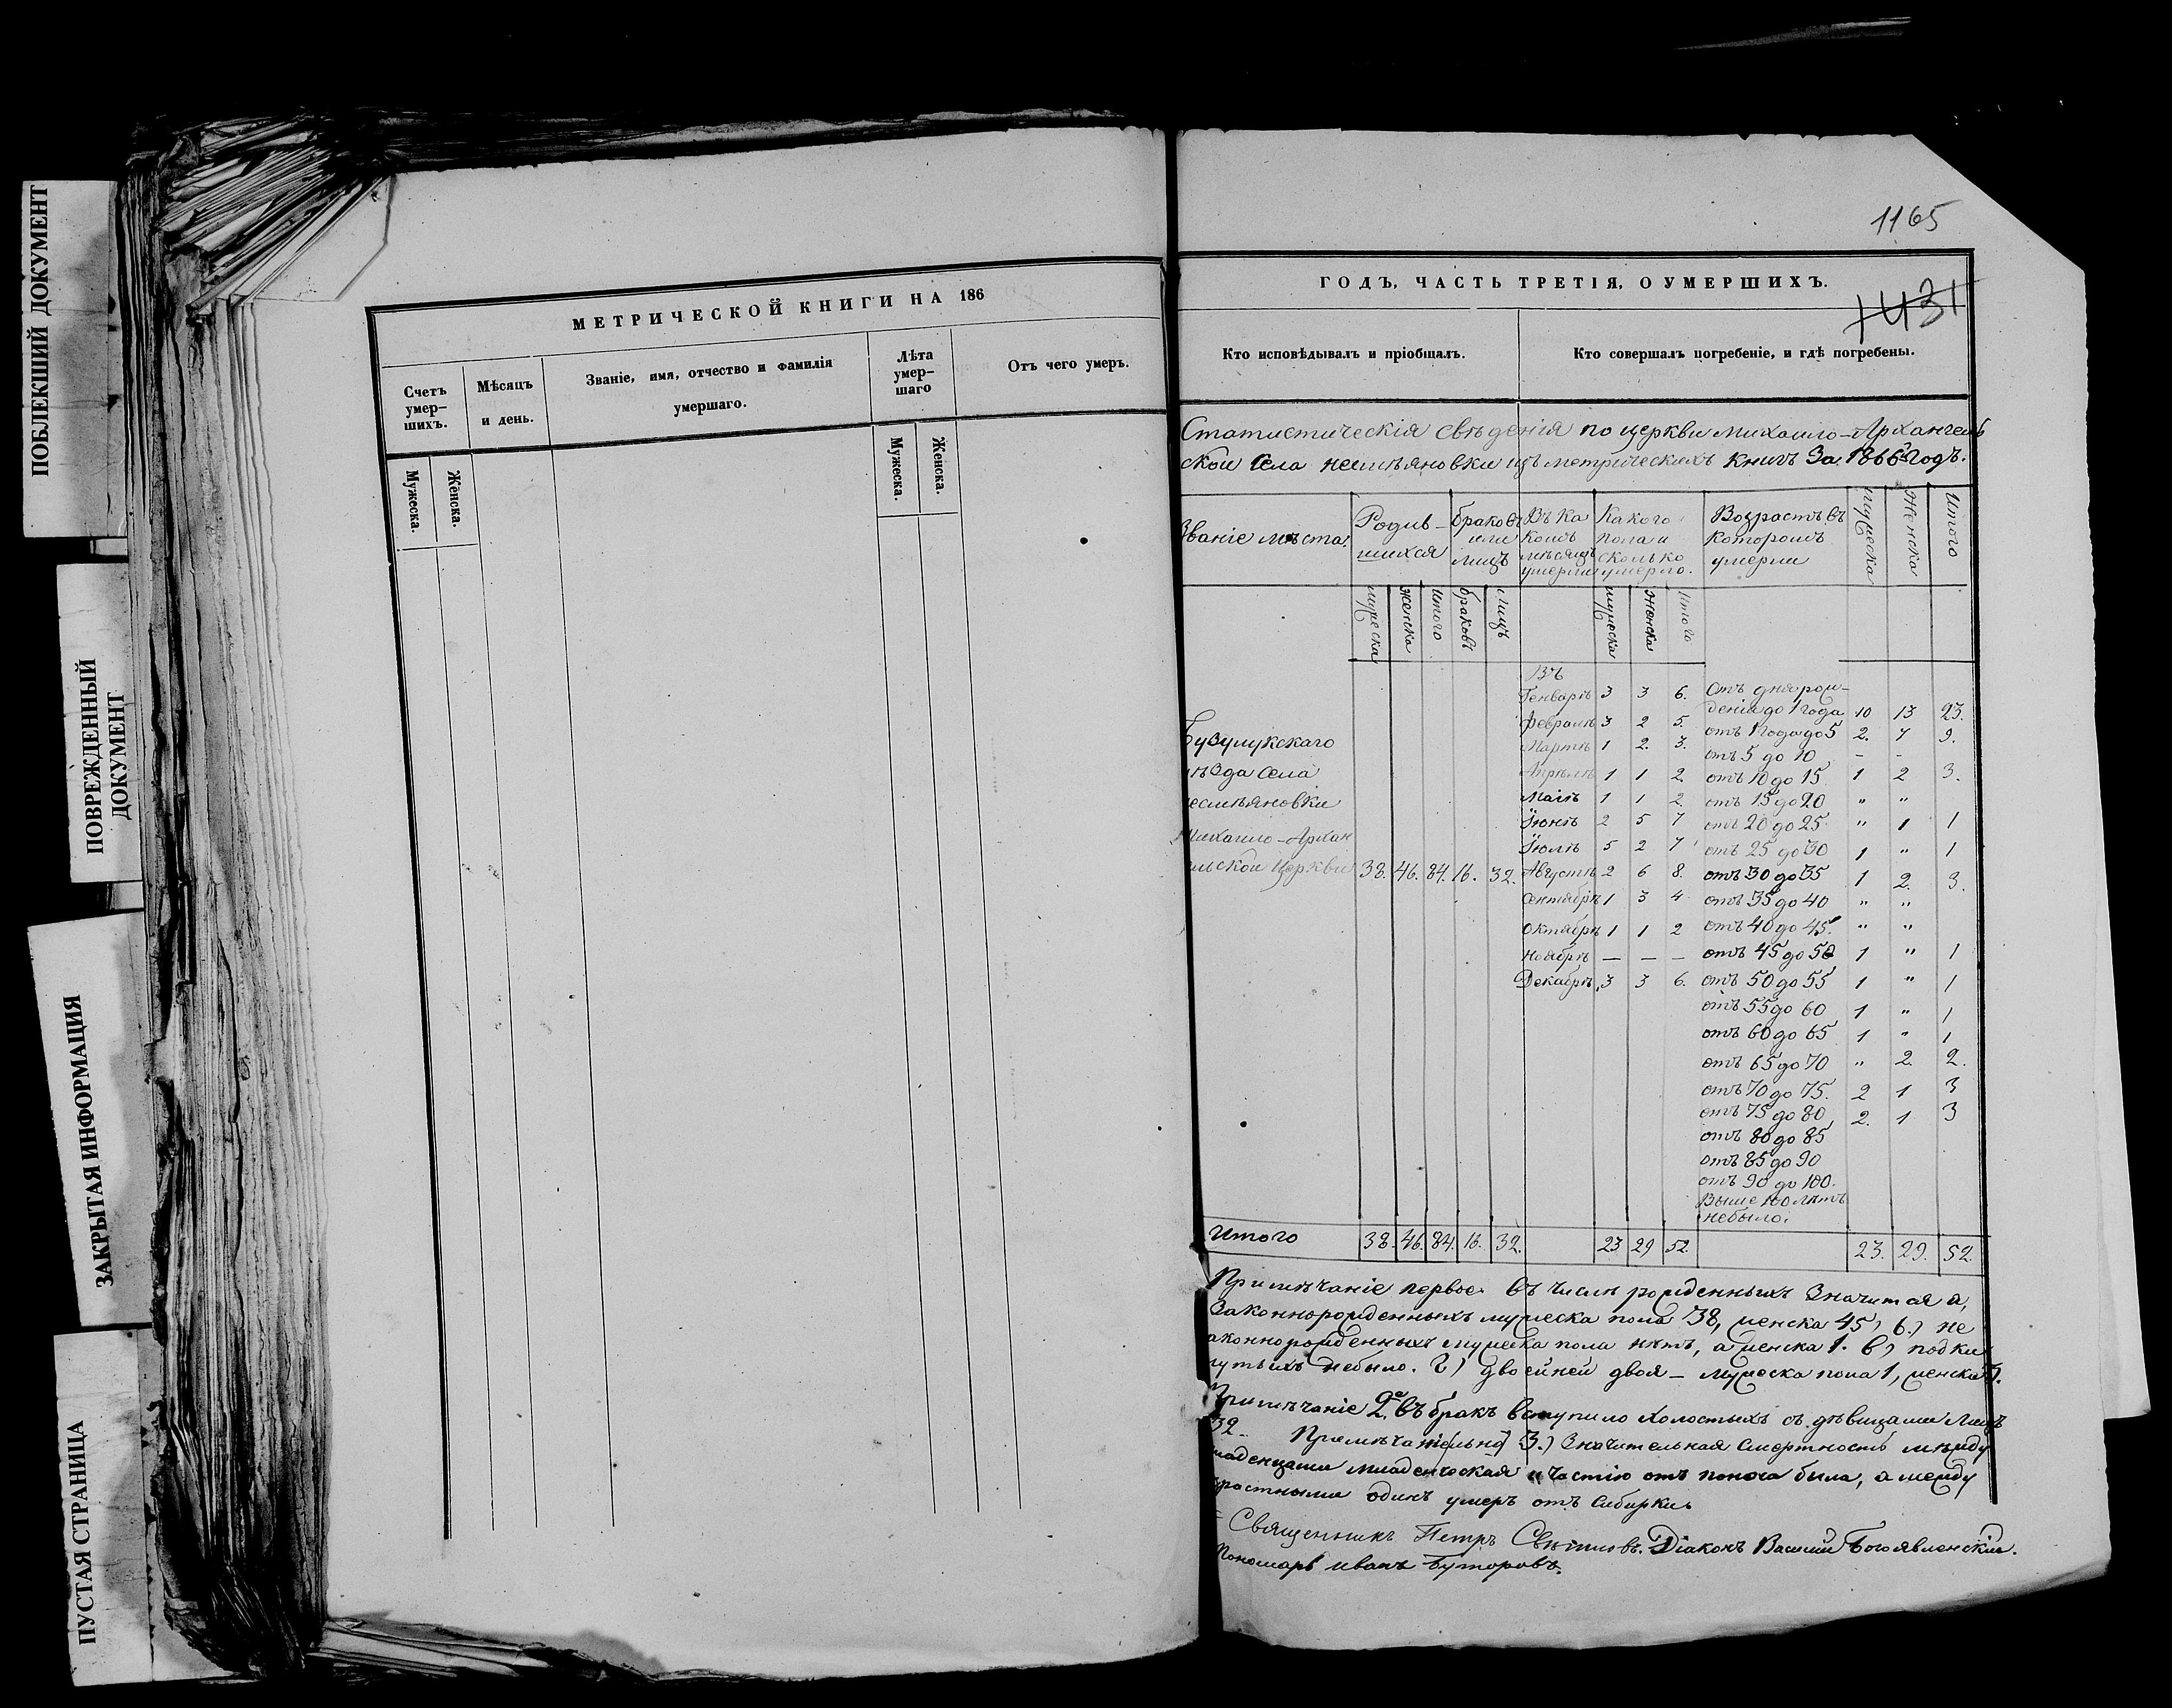 ПОБЛЕКШИЙ ДОКУМЕНТ
ПОВРЕЖДЕННЫЙ
ДОКУМЕНТ
ЗАКРЫТАЯ ИНФОРМАЦИЯ
ПУСТАЯ СТРАНИЦА
МЕТРИЧЕСКОЙ КНИГИ НА 186
Счетъ
умер-
шихъ.
Мѣсяцъ
и день.
Званіе, имя, отчество и фамилія
умершаго.
Лѣта
умер-
шаго
Отъ чего умеръ.
Мужеска.
Женска.
Мужеска.
Женска.
1165
ГОДЪ, ЧАСТЬ ТРЕТІЯ, О УМЕРШИХЪ.
1431
Кто исповѣдывалъ и пріобщалъ.
Кто совершалъ погребеніе, и гдѣ погребены.
Статистическія свѣденія по церкви Михаило-Архангель
ской Села несмѣяновки изъ метрическихъ книгъ За 1866 Годъ.
Званіе мѣста.
Родив-
шихся
браковъ
или
лицъ
Въ ка
комъ
мѣсяцѣ
умерли
Какого
пола и
сколько
умерло.
Возрастъ въ
которомъ
умерли
мужеска
Женска
Итого
мужеска
женска
итого
браковъ
лицъ
мужеска
женска
итого
Въ
Генварѣ 3 3 6. Отъ дня рож-
денія до 1 года 10 13 23.
Февралѣ 3 2 5. отъ 1 года до 5 2. 7 9.
Мартѣ 1 2. 3. отъ 5 до 10 - -
Апрѣлѣ 1 1 2. отъ 10 до 15 1 2 3.
Маіѣ 1 1 2. отъ 15 до 20 " "
Іюнѣ 2 5 7 отъ 20 до 25. " 1 1
Іюлѣ 5 2 7 отъ 25 до 30 1 " 1
Бузулукскаго
ѣзда Села
несмѣяновки
Михаило-Архан
ельской Церкви 38. 46. 84. 16. 32. Августѣ 2 6 8. отъ 30 до 35 1 2. 3.
Сентябрѣ 1 3 4 отъ 35 до 40 " "
Октябрѣ 1 1 2 отъ 40 до 45. " "
Ноябрѣ — — — отъ 45 до 50 1 " 1
Декабрѣ 3 3 6. отъ 50 до 55 1 " 1
отъ 55 до 60 1 " 1
отъ 60 до 65 1 " 1
отъ 65 до 70 " 2. 2.
отъ 70 до 75. 2 1 3
отъ 75 до 80 2. 1 3
отъ 80 до 85
отъ 85 до 90
отъ 90 до 100.
Выше 100 лѣтъ
небыло.
Итого 38. 46. 84. 16. 32. 23 29 52. 23. 29. 52.
Примѣчаніе первое. Въ числѣ рожденныхъ Значится а,
Законнорожденныхъ мужеска пола 38, женска 45, б.) не
аконнорожденныхъ мужеска пола нѣтъ, а женска 1. в) подки
утыхъ небыло. г) Двойней двоя — мужеска пола 1, женска 3.
Примѣчаніе 2е. Въ бракъ вступило холостыхъ съ дѣвицами Лицъ
32. Примѣчательно 3.) Значительная Смертность между
младенцами младенческая частію отъ поноса была, а между
зрастными одинъ умеръ отъ Сибирки.
Священникъ Петръ Свѣтловъ. Діаконъ Василій Богоявленскій.
Пономарь иванъ Буторовъ.